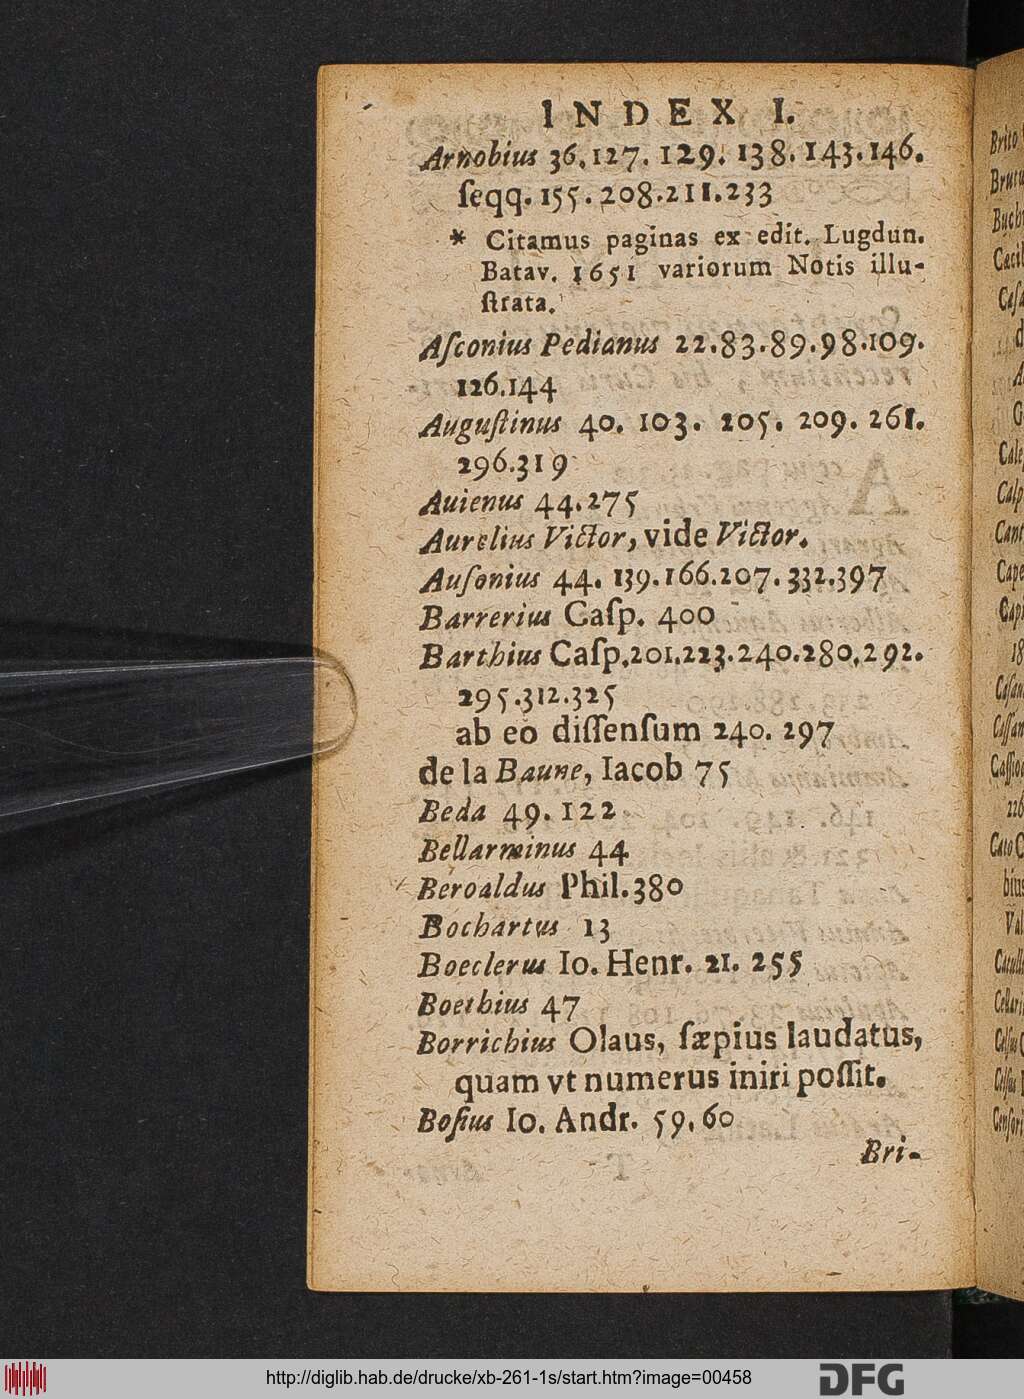 INDEX I.
Arnobius 36. 127. 129. 138. 143. 146.
ſeqq. 155. 208. 211. 233
* Citamus paginas ex edit. Lugdun.
Batav. 1651 variorum Notis illu-
ſtrata.
Aſconius Pedianus 22. 83. 89. 98. 109.
126. 144
Auguſtinus 40. 103. 205. 209. 261.
296. 319
Auienus 44. 275
Aurelius Victor, vide Victor.
Auſonius 44. 139. 166. 207. 332. 397
Barrerius Caſp. 400
Barthius Caſp. 201. 223. 240. 280. 292.
295. 312. 325
ab eo diſſenſum 240. 297
de la Baune, Iacob 75
Beda 49. 122
Bellarminus 44
Beroaldus Phil. 380
Bochartus 13
Boeclerus Io. Henr. 21. 255
Boethius 47
Borrichius Olaus, ſæpius laudatus,
quam vt numerus iniri poſſit.
Boſius Io. Andr. 59. 60
Bri-
Brito
Cale
http://diglib.hab.de/drucke/xb-261-1s/start.htm?image=00458
DFG